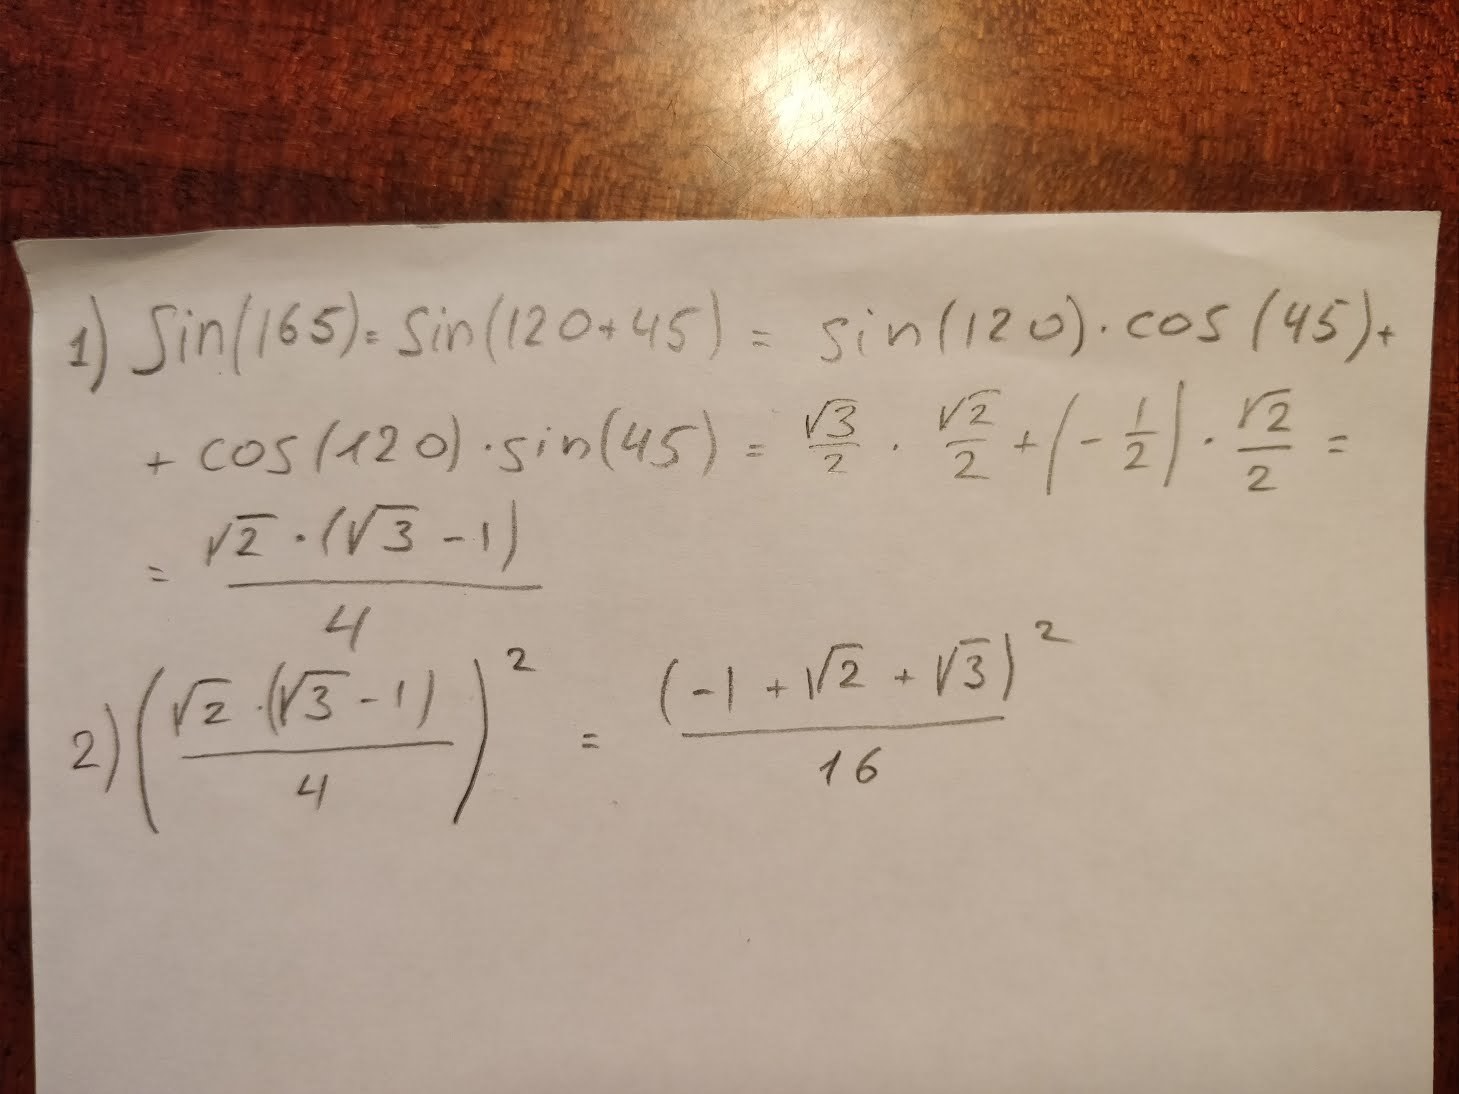 1) Sin(165)= Sin(120+45) = sin(120)·cos(45)+
+ cos(120)·sin(45) = √3/2 · √2/2 + (-1/2) · √2/2 =
= √2·(√3-1)/4
2) (√2·(√3-1)/4)² = (-1+√2+√3)²/16